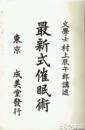 文學士村上辰午郎講述
最新式催眠術
東京　成美堂發行